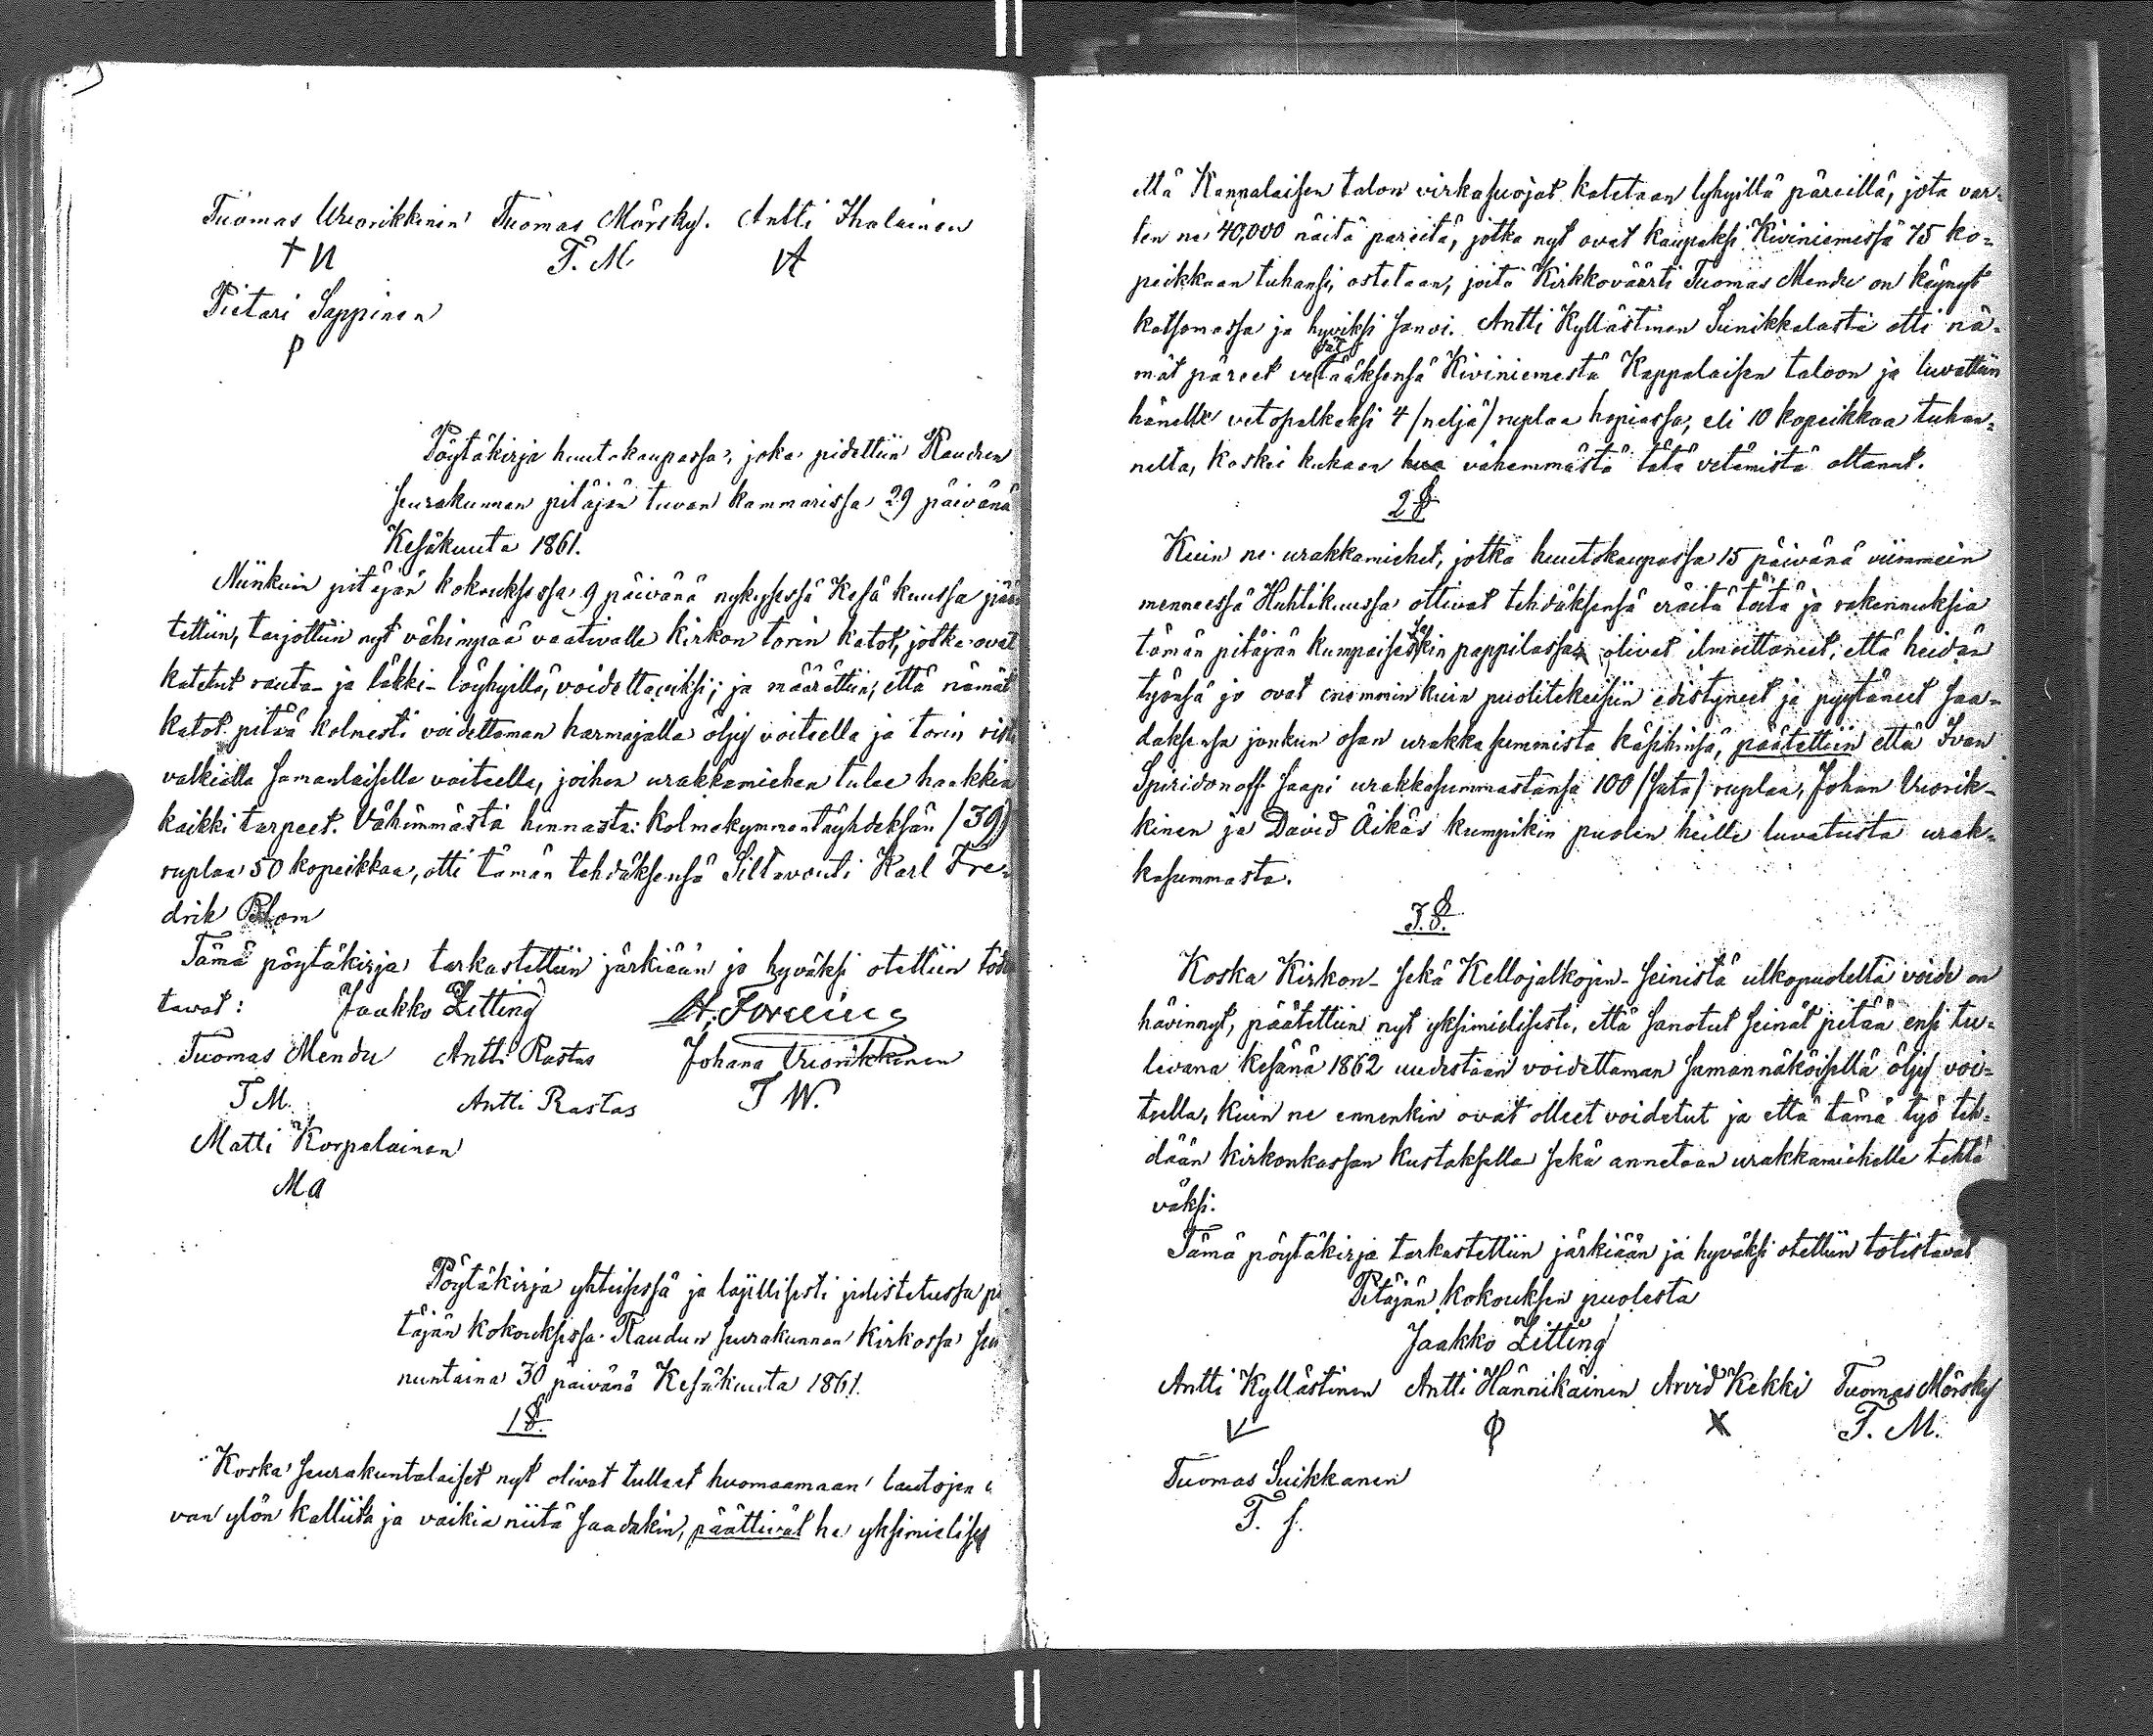 Tuomas Wuorikkinen Tuomas Mörsky. Antti Ihalainen
T. M.
Pietari Seppinen
P
Pöytäkirja huutokaupassa, joka pidettiin Raudun
seurakunnan pitäjän tuvan kammarissa 29 päivänä
Kesäkuuta 1861.
Niinkuin pitäjän kokouksessa 9 päivänä nykysessä Kesä kuussa pää
tettiin, tarjottiin nyt vähimpää vaativalle kirkon torin katot, jotka ovat
katetut rauta- ja läkki-löyhyillä, voidettaviksi; ja määrättiin, että nämät
katot pitää kolmesti voidettaman harmajalla öljy voiteella ja torin risti
valkialla samanlaisella voiteella, joihin urakkamiehen tulee hankkia
kaikki tarpeet. Vähimmästä hinnasta: kolmekymmentäyhdeksän /39/
ruplaa 50 kopeikkaa, otti tämän tehdäksensä Siltavouti Karl Fre-
drik Blom
Tämä pöytäkirja tarkastettiin järkiään ja hyväksi otettiin todis
tavat: Jaakko Zitting
Tuomas Mendu Antti Rastas Johana Vuorikkinen
T M. Antti Rastas J W.
Matti Korpelainen
M a
Pöytäkirja yhteisessä ja lajillisesti julistetussa pi
täjän kokouksessa Raudun seurakunnan kirkossa sun
nuntaina 30 päivänä Kesäkuuta 1861.
1 §.
Koska seurakuntalaiset nyt olivat tulleet huomaamaan lautojen
van ylön kalliita ja vaikia niitä saadakin, päättivät he yksimielises
että Kappalaisen talon virkasuojat katetaan lyhyillä päreillä, jota var-
ten ne 40,000 näitä pareitä, jotka nyt ovat kaupaksi Kiviniemessä 75 ko-
peikkaan tuhansi, ostetaan, joita Kirkkoväärti Tuomas Mendu on käynyt
katsomassa ja hyviksi sanoi. Antti Kyllästinen Sunikkalasta otti nä-
mät päreet vetääksensä Kiviniemestä Kappalaisen taloon ja luvattiin
hänelle vetopalkaksi 4 /neljä/ ruplaa hopiassa, eli 10 kopeikkaa tuhan-
nelta, koskei kukaan vähemmästä tätä vetämistä ottanut.
2 §
Kuin ne urakkamiehet, jotka huutokaupassa 15 päivänä viimmein
menneessä Huhtikuussa ottivat tehdäksensä eräitä töitä ja rakennuksia
tämän pitäjän kumpaisessakin pappilassa olivat ilmoittaneet, että heidän
työnsä jo ovat enemmin kuin puolitekeisiin edistyneet ja pyytäneet saa-
daksensa jonkun osan urakka summista käsihinsä, päätettiin että Ivan
Spiridonoff saapi urakkasummastansa 100 /sata/ ruplaa, Johan Vuorik-
kinen ja David Äikäs kumpikin puolen heille luvatusta urak-
kasummasta.
3. §.
Koska Kirkon- sekä Kellojalkojen- seinistä ulkopuolelta voide on
hävinnyt, päätettiin nyt yksimielisesti, että sanotut seinät pitää ensi tu-
levana kesänä 1862 uudestaan voidettaman samannäköisellä öljy voi-
teella, kuin ne ennenkin ovat olleet voidetut ja että tämä työ teh-
dään kirkonkassan kustaksella sekä annetaan urakkamiehelle tehtä
väksi.
Tämä pöytäkirja tarkastettiin järkiään ja hyväksi otettiin totistavat
Pitäjän kokouksen puolesta
Jaakko Zitting
Antti Kyllästinen Antti Hännikäinen Arvid Kekki Tuomas Mörsky
T. M.
Tuomas Suikkanen
T. S.